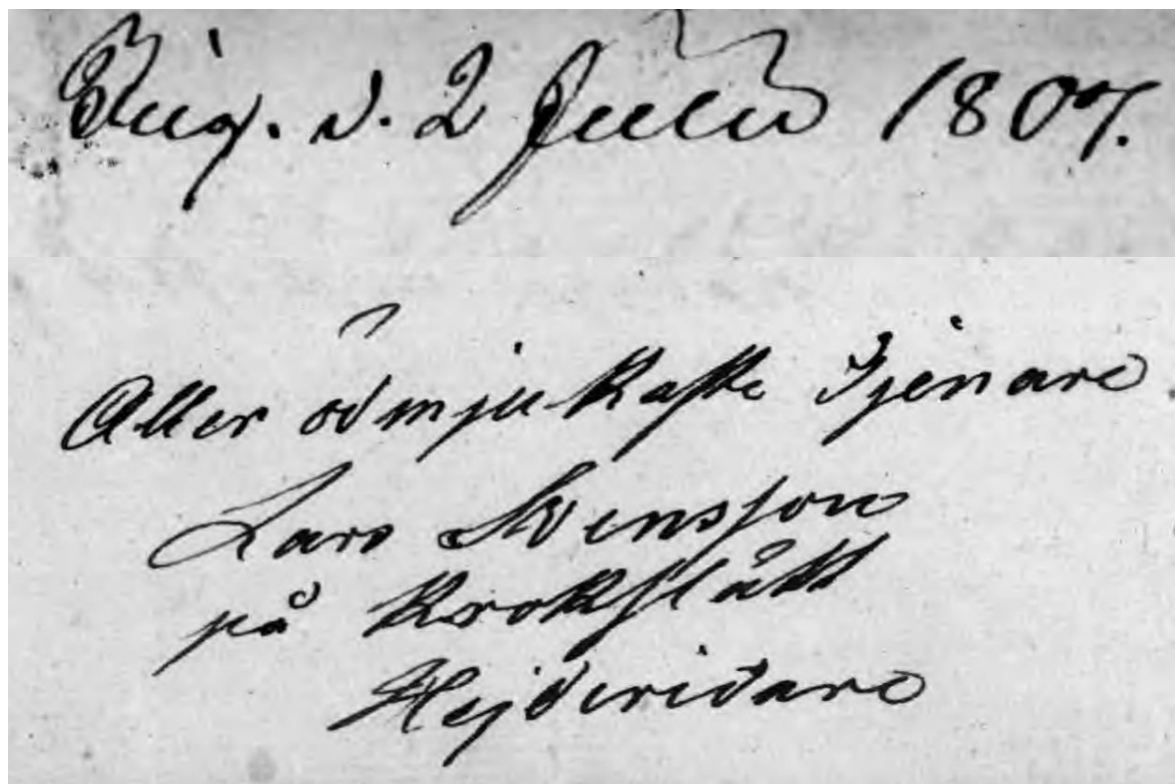 d. 2 Julii 1807.
Aller ödmjukaste Tjenare
Lars Svensson
på Krokslätt
Hejderidare